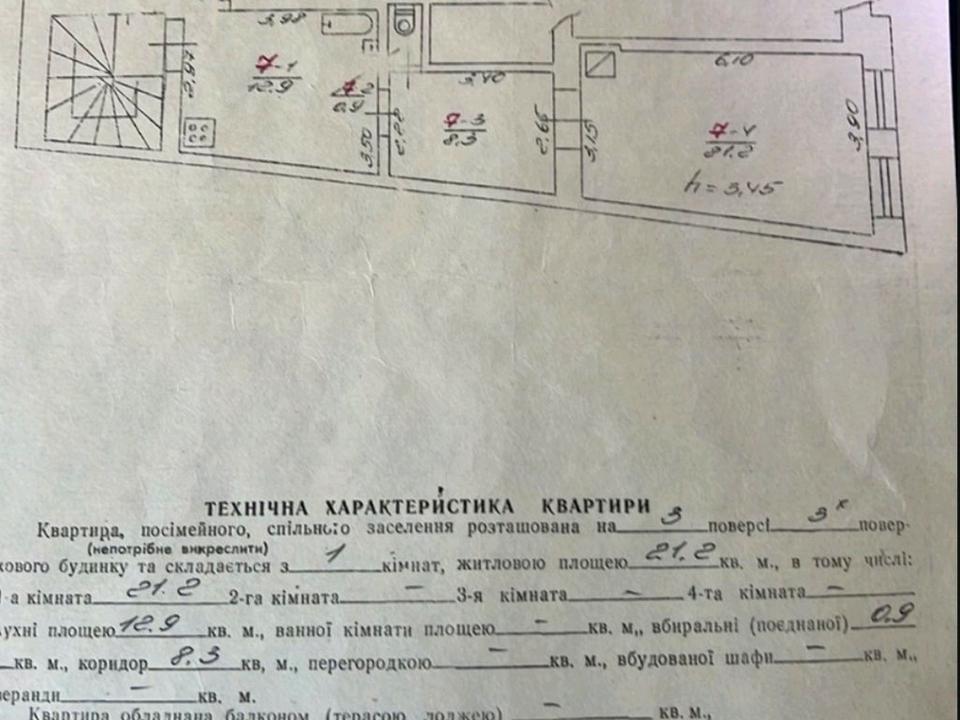 3,98
7-1
12.9
7-2
0,9
3,50
3,40
7-3
8.3
2,65
3,15
6,10
7-4
21.2
3,90
h = 3,45
ТЕХНІЧНА ХАРАКТЕРИСТИКА КВАРТИРИ
Квартира, посімейного, спільного заселення розташована на 3 поверсі 3х повер-
(непотрібне викреслити)
хового будинку та складається з 1 кімнат, житловою площею 21.2 кв. м., в тому числі:
1-а кімната 21.2 2-га кімната — 3-я кімната — 4-та кімната —
кухні площею 12.9 кв. м., ванної кімнати площею — кв. м., вбиральні (поєднаної) 0,9
кв. м., коридор 8.3 кв, м., перегородкою — кв. м., вбудованої шафи — кв. м.,
веранди — кв. м.
Квартира обладнана балконом (терасою, лоджією) — кв. м.,